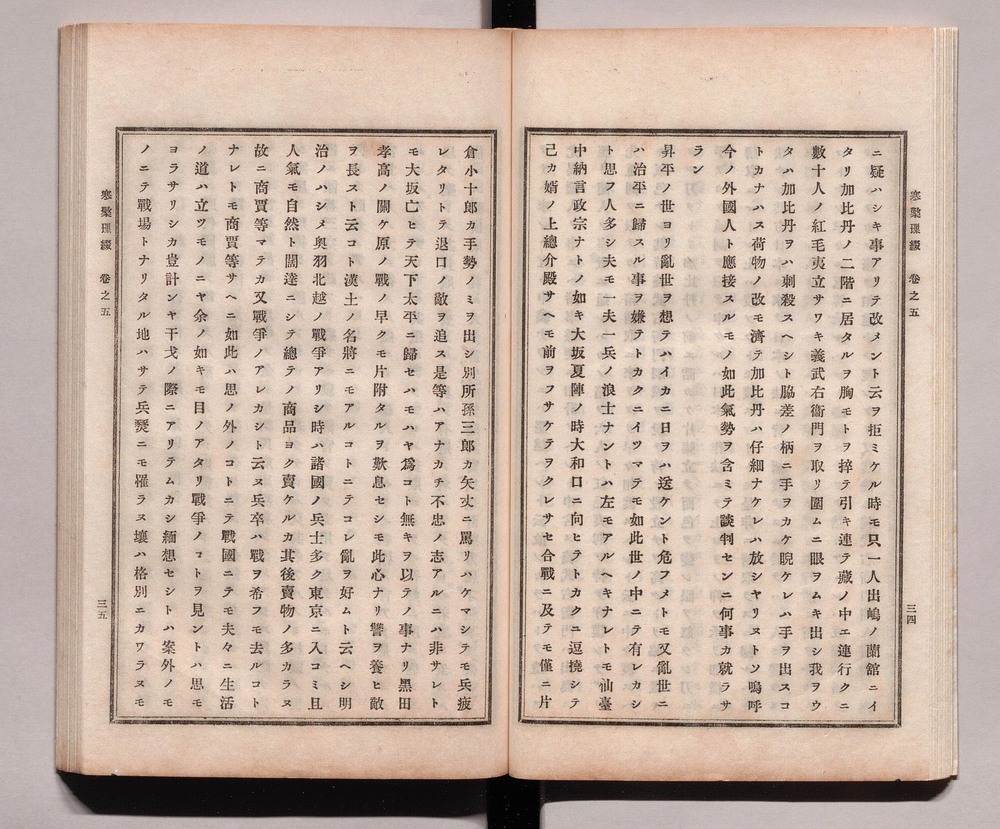 寒檠璅綴 卷之五
三四
ニ疑ハシキ事アリテ改メント云ヲ拒ミケル時モ只一人出嶋ノ蘭舘ニイ
タリ加比丹ノ二階ニ居タルヲ胸モトヲ捽テ引キ連テ藏ノ中エ連行クニ
數十人ノ紅毛夷立サワキ義武右衞門ヲ取リ圍ムニ眼ヲムキ出シ我ヲウ
タハ加比丹ヲハ刺殺スヘシト脇差ノ柄ニ手ヲカケ睨ケレハ手ヲ出スコ
トカナハス荷物ノ改モ濟テ加比丹ハ仔細ナケレハ放シヤリヌトソ嗚呼
今ノ外國人ト應接スルモノ如此氣勢ヲ含ミテ談判センニ何事カ就ラサ
ラン
昇平ノ世ヨリ亂世ヲ想テハイカニ日ヲハ送ケント危フメトモ又亂世ニ
ハ治平ニ歸スル事ヲ嫌テトカクニイツマテモ如此世ノ中ニテ有レカシ
ト思フ人多シ夫モ一夫一兵ノ浪士ナントハ左モアルヘキナレトモ仙臺
中納言政宗ナトノ如キ大坂夏陣ノ時大和口ニ向ヒテトカクニ逗撓シテ
己カ婿ノ上總介殿サヘモ前ヲフサケテヲクレサセ合戰ニ及テモ僅ニ片
倉小十郎カ手勢ノミヲ出シ別所孫三郎カ矢丈ニ罵リハケマシテモ兵疲
レタリトテ退口ノ敵ヲ追ス是等ハアナカチ不忠ノ志アルニハ非サレト
モ大坂亡ヒテ天下太平ニ歸セハモハヤ爲コト無キヲ以テノ事ナリ黑田
孝高ノ關ケ原ノ戰ノ早クモ片附タルヲ歎息セシモ此心ナリ讐ヲ養ヒ敵
ヲ長スト云コト漢土ノ名將ニモアルコトニテコレ亂ヲ好ムト云ヘシ明
治ノハシメ奥羽北越ノ戰爭アリシ時ハ諸國ノ兵士多ク東京ニ入コミ且
人氣モ自然ト闊達ニシテ總テノ商品ヨク賣ケルカ其後賣物ノ多カラヌ
故ニ商賈等マテカ又戰爭ノアレカシト云ヌ兵卒ハ戰ヲ希フモ去ルコト
ナレトモ商賈等サヘニ如此ハ思ノ外ノコトニテ戰國ニテモ夫々ニ生活
ノ道ハ立ツモノニヤ余ノ如キモ目ノアタリ戰爭ノコトヲ見ントハ思モ
ヨラサリシカ豈計ンヤ干戈ノ際ニアリテムカシ緬想セシトハ案外ノモ
ノニテ戰場トナリタル地ハサテ兵燹ニモ罹ラヌ壤ハ格別ニカワラヌモ
寒檠璅綴 卷之五
三五